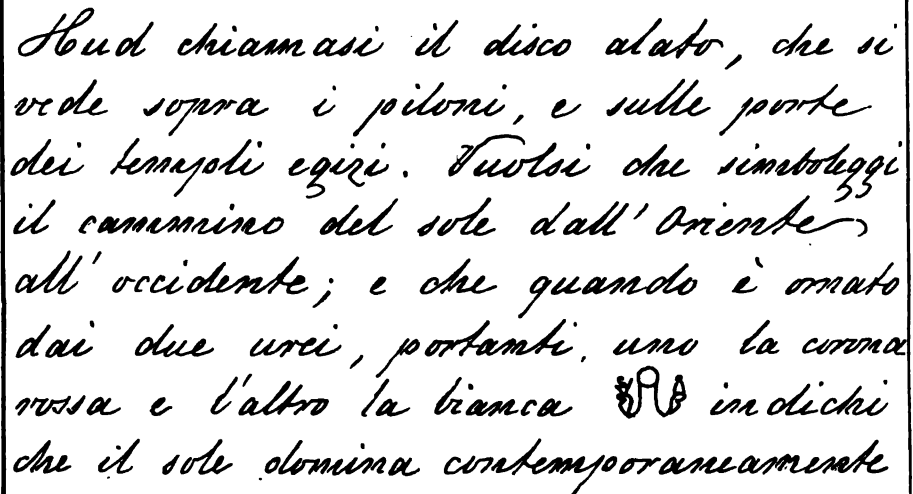 Hud chiamasi il disco alato, che si
vede sopra i piloni, e sulle porte
dei templi egizi. Vuolsi che simboleggi
il cammino del sole dall' Oriente
all' occidente; e che quando è ornato
dai due urei, portanti, uno la corona
rossa e l'altro la bianca indichi
che il sole domina contemporaneamente